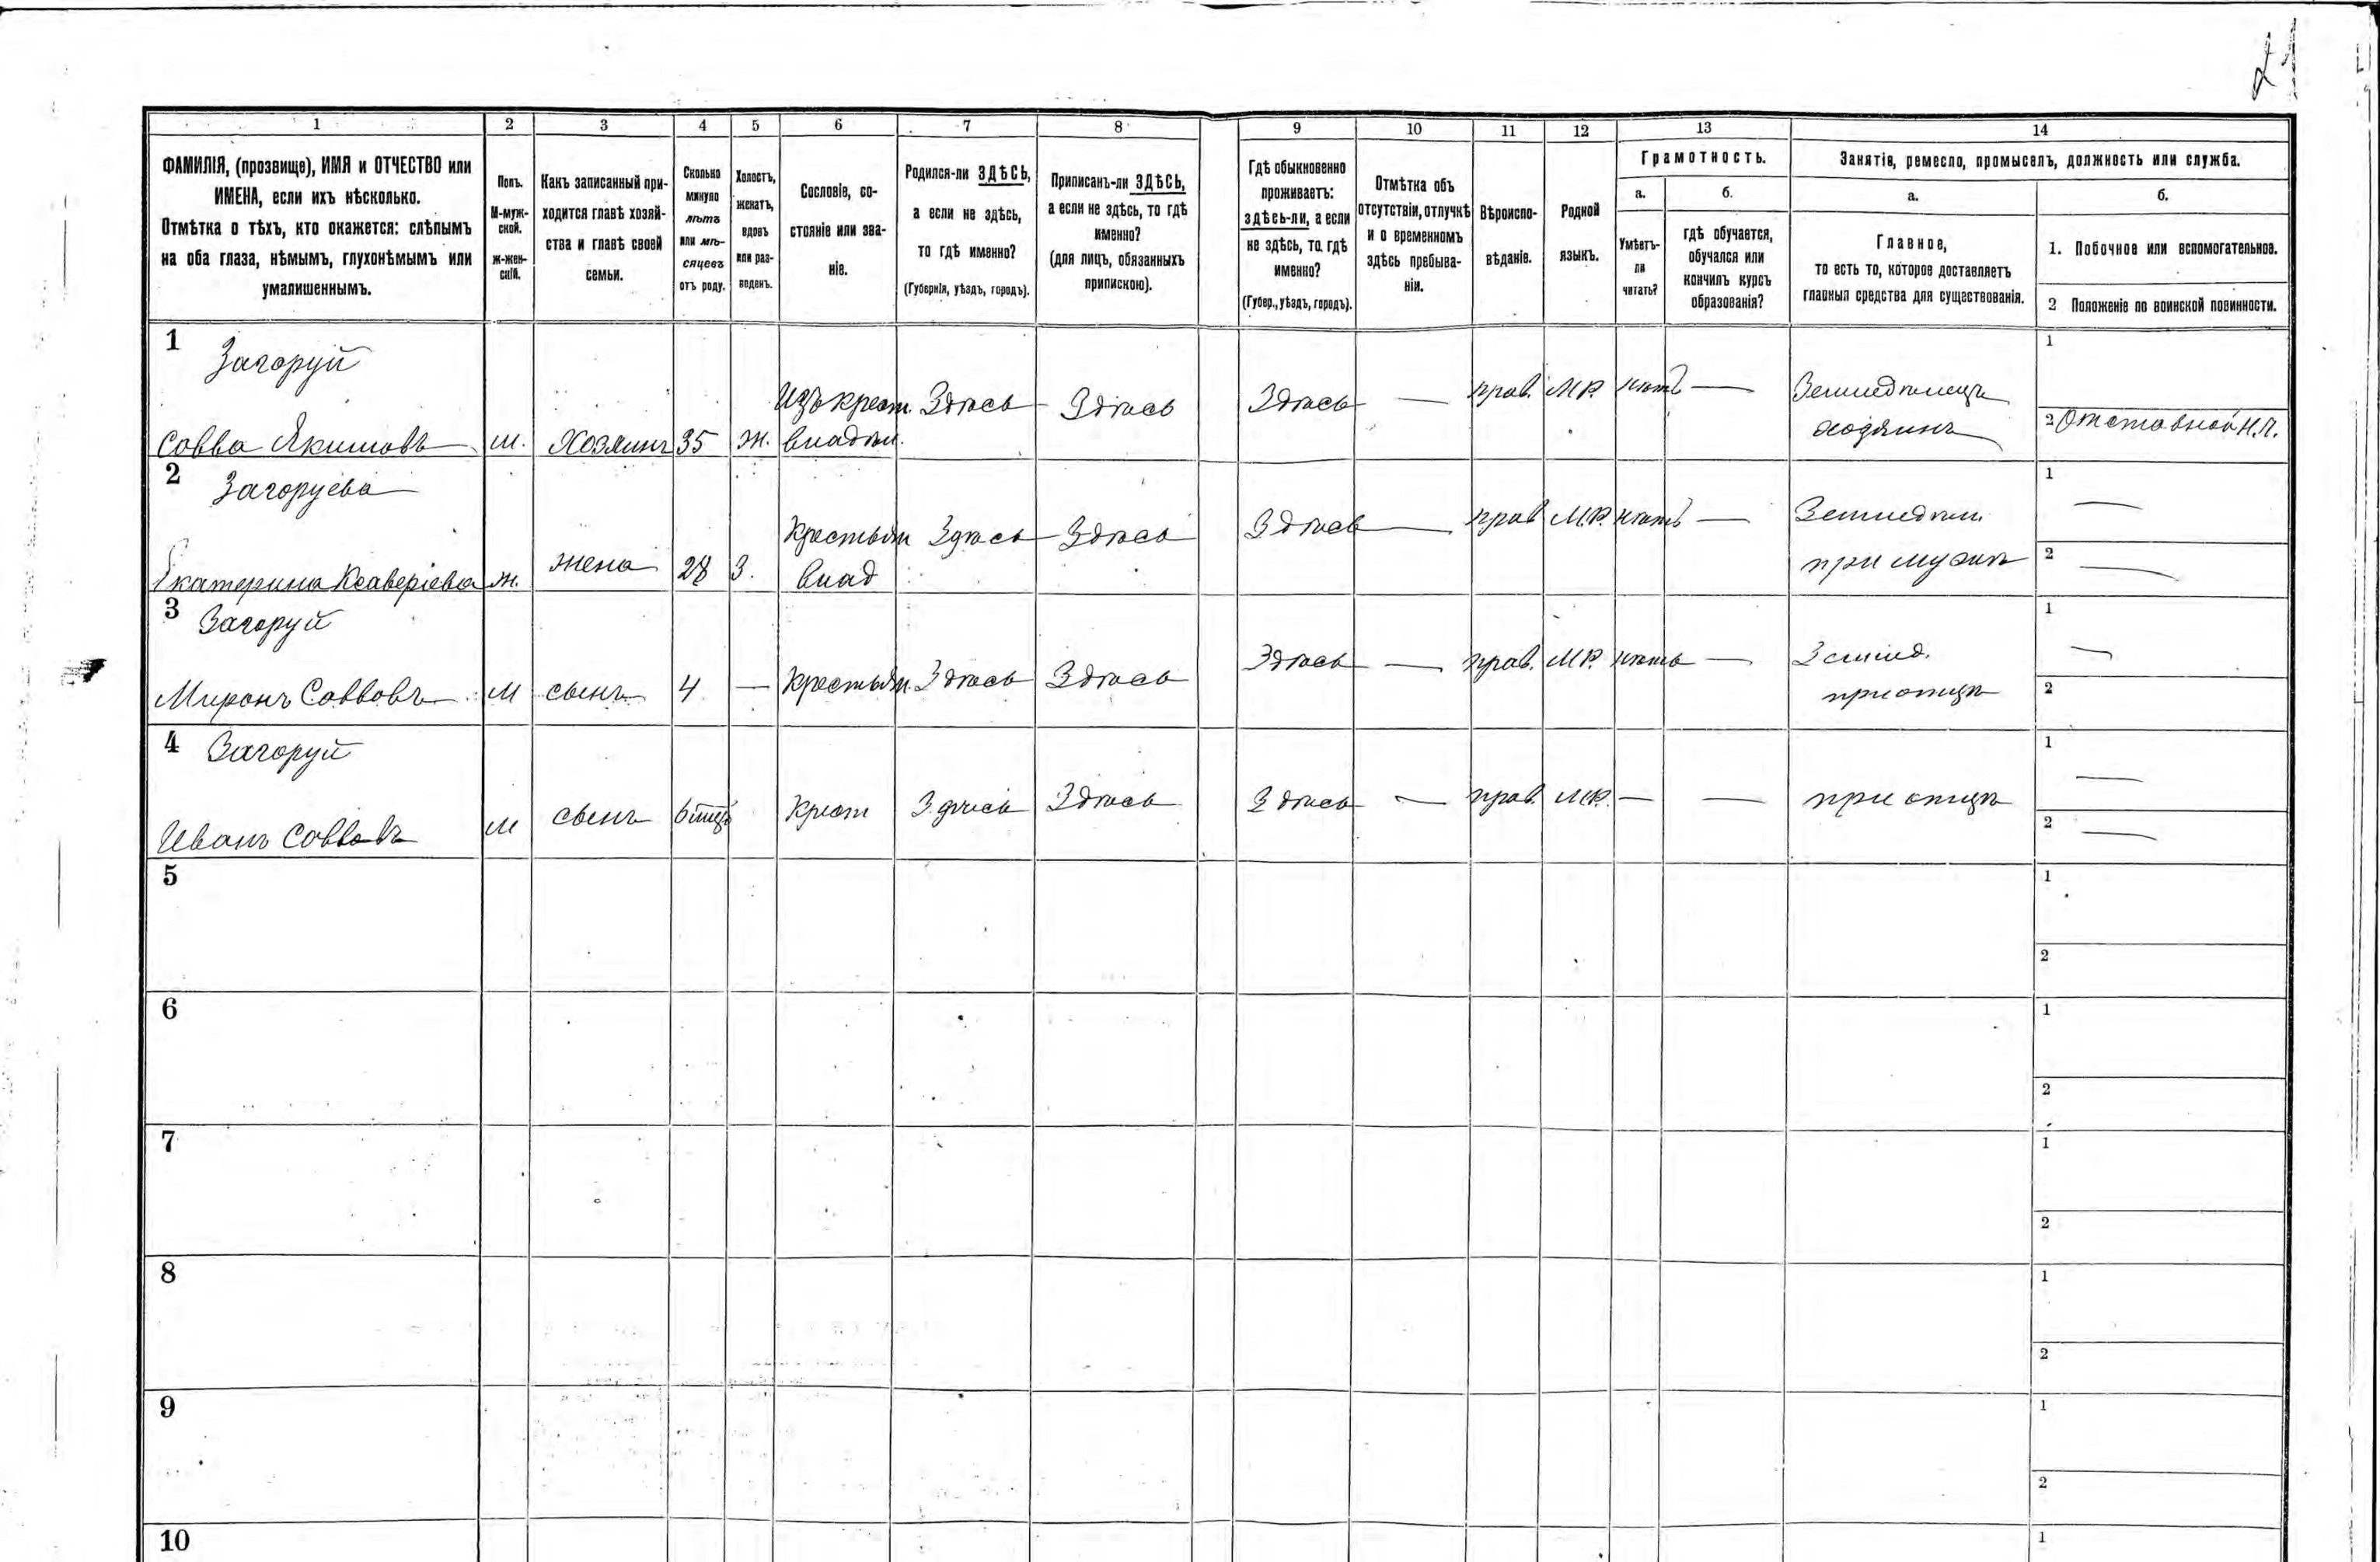 21
1 2 3 4 5 6 7 8 9 10 11 12 13 14
ФАМИЛІЯ, (прозвище), ИМЯ и ОТЧЕСТВО или
ИМЕНА, если ихъ нѣсколько.
Отмѣтка о тѣхъ, кто окажется: слѣпымъ
на оба глаза, нѣмымъ, глухонѣмымъ или
умалишеннымъ.
Полъ.
М-муж-
ской.
ж-жен-
скій.
Какъ записанный при-
ходится главѣ хозяй-
ства и главѣ своей
семьи.
Сколько
минуло
лѣтъ
или мѣ-
сяцевъ
отъ роду.
Холостъ,
женатъ,
вдовъ
или раз-
веденъ.
Сословіе, со-
стояніе или зва-
ніе.
Родился-ли ЗДѢСЬ,
а если не здѣсь,
то гдѣ именно?
(Губернія, уѣздъ, городъ).
Приписанъ-ли ЗДѢСЬ,
а если не здѣсь, то гдѣ
именно?
(для лицъ, обязанныхъ
припискою).
Гдѣ обыкновенно
проживаетъ:
здѣсь-ли, а если
не здѣсь, то гдѣ
именно?
(Губер., уѣздъ, городъ).
Отмѣтка объ
отсутствіи, отлучкѣ
и о временномъ
здѣсь пребыва-
ніи.
Вѣроиспо-
вѣданіе.
Родной
языкъ.
Грамотность.
а.
Умѣетъ-
ли
читать?
б.
гдѣ обучается,
обучался или
кончилъ курсъ
образованія?
Занятія, ремесло, промыселъ, должность или служба.
а.
Главное,
то есть то, которое доставляетъ
главныя средства для существованія.
б.
1. Побочное или вспомогательное.
2 Положеніе по воинской повинности.
1 Загоруй
Изъ крест. Здѣсь Здѣсь Здѣсь — прав. М.Р. нѣтъ — Земледѣлецъ 1
Совва Якимовъ м. Хозяинъ 35 ж. владѣл. хозяинъ 2 Отставной Н.Ч.
2 Загоруева
Крестьян Здѣсь Здѣсь Здѣсь — прав М.Р. нѣтъ — Земледѣл. 1 —
Екатерина Ксаверіева ж. жена 28 З. влад при мужѣ 2 —
3 Загоруй
Здѣсь — прав. М.Р. нѣтъ — Землед. 1 —
Миронъ Соввовъ м сынъ 4 — Крестьян. Здѣсь Здѣсь при отцѣ 2
4 Загоруй
1 —
Иванъ Соввовъ м сынъ 6 мцъ Крест Здѣсь Здѣсь Здѣсь — прав. М.Р. — — при отцѣ 2 —
5 1
2
6 1
2
7 1
2
8 1
2
9 1
2
10 1